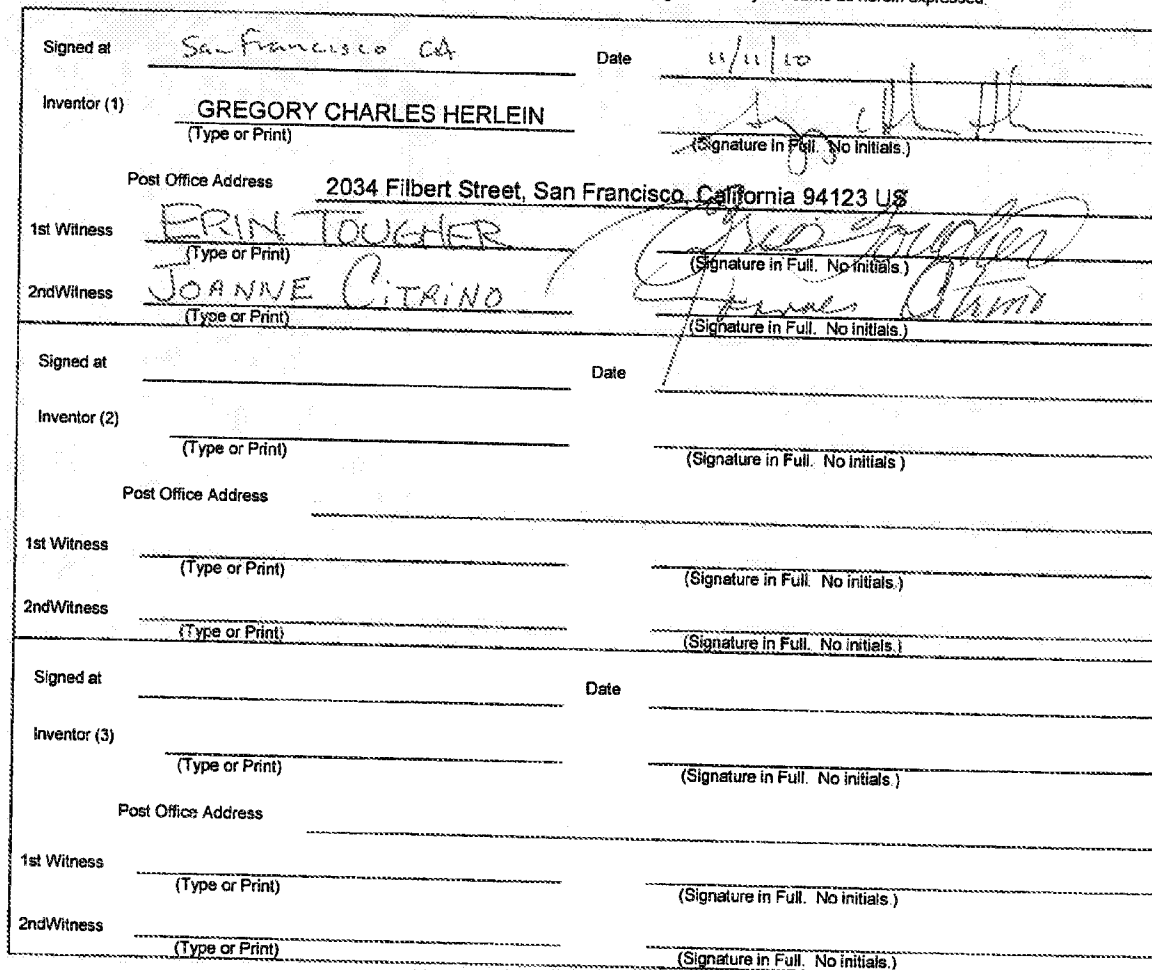 as herein expressed.
Signed at San Francisco CA Date 11/11/10
Inventor (1) GREGORY CHARLES HERLEIN
(Type or Print) (Signature in Full. No initials.)
Post Office Address 2034 Filbert Street, San Francisco, California 94123 US
1st Witness ERIN TOUGHER Erin Tougher
(Type or Print) (Signature in Full. No initials.)
2ndWitness JOANNE CITRINO
(Type or Print) (Signature in Full. No initials.)
Signed at Date
Inventor (2)
(Type or Print) (Signature in Full. No initials )
Post Office Address
1st Witness
(Type or Print) (Signature in Full. No initials.)
2ndWitness
(Type or Print) (Signature in Full. No initials.)
Signed at Date
Inventor (3)
(Type or Print) (Signature in Full. No initials.)
Post Office Address
1st Witness
(Type or Print) (Signature in Full. No initials.)
2ndWitness
(Type or Print) (Signature in Full. No initials.)